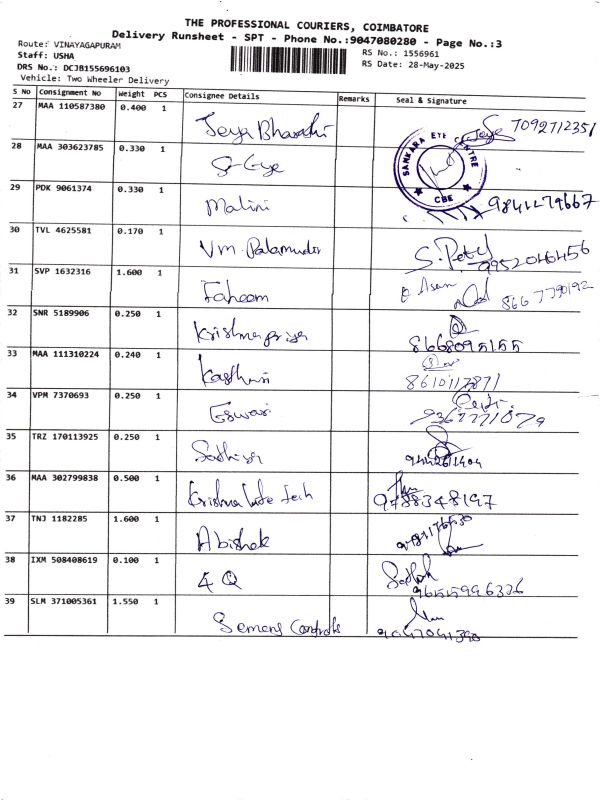 THE PROFESSIONAL COURIERS, COIMBATORE
Delivery Runsheet - SPT - Phone No.:9047080280 - Page No.:3
Route: VINAYAGAPURAM
RS No.: 1556961
Staff: USHA
RS Date: 28-May-2025
DRS No.: DCJB155696103
Vehicle: Two Wheeler Delivery
S No Consignment No Weight PCS Consignee Details Remarks Seal & Signature
27 MAA 110587380 0.400 1
Jeya Bharathi 7092712351
28 MAA 303623785 0.330 1
SANKARA EYE CENTRE
CBE
29 PDK 9061374 0.330 1
Malini
30 TVL 4625581 0.170 1
S. Petty
9952046456
31 SVP 1632316 1.600 1
Faheem
8667790192
32 SNR 5189906 0.250 1
Krishnapriya 8668095155
33 MAA 111310224 0.240 1
Kasthuri 8610117871
34 VPM 7370693 0.250 1
Eswari
35 TRZ 170113925 0.250 1
Sathiya
36 MAA 302799838 0.500 1
9788348197
37 TNJ 1182285 1.600 1
Abishek
38 IXM 508408619 0.100 1
4 Q
Sathish
9655996336
39 SLM 371005361 1.550 1
Semens Controls